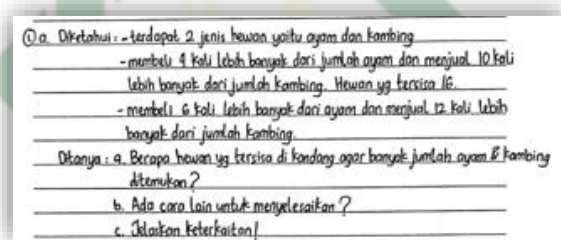 ① a. Diketahui : - terdapat 2 jenis hewan yaitu ayam dan kambing
- membeli 4 kali lebih banyak dari jumlah ayam dan menjual 10 kali
lebih banyak dari jumlah kambing. Hewan yg tersisa 16.
- membeli 6 kali lebih banyak dari ayam dan menjual 12 kali lebih
banyak dari jumlah kambing.
Ditanya : a. Berapa hewan yg tersisa di kandang agar banyak jumlah ayam & kambing
ditemukan ?
b. Ada cara lain untuk menyelesaikan ?
c. Jelaskan keterkaitan !